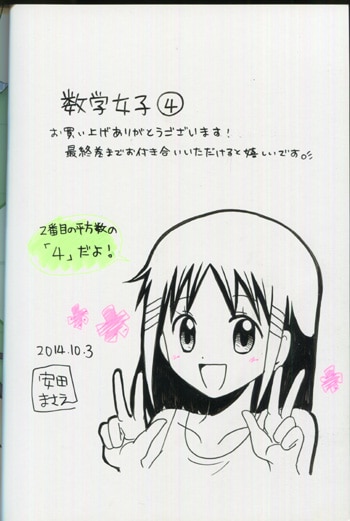 数学女子④
お買い上げありがとうございます!
最終巻までお付き合いいただけると嬉しいです。
2番目の平方数の
「4」だよ!
2014.10.3
安田
まさえ